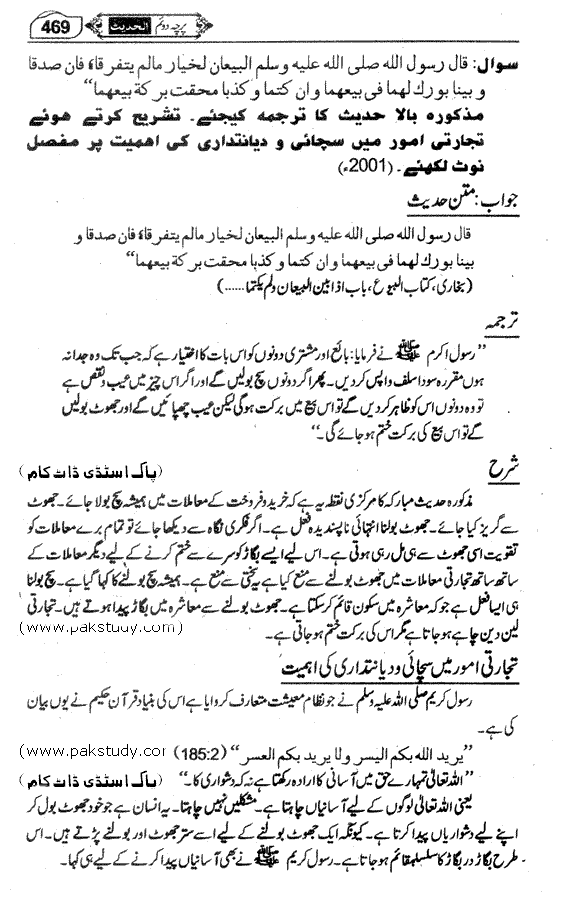 469 الحدیث پرچہ دوئم
سوال: قال رسول الله صلى الله عليه وسلم البيعان لخيار مالم يتفر قاۂ فان صدقا
و بينا بورك لهما فى بيعهما وان كتما و كذبا محقت بر كة بيعهما“
مذکورہ بالا حدیث کا ترجمہ کیجئے۔ تشریح کرتے ھوئے
تجارتی امور میں سچائی و دیانتداری کی اھمیت پر مفصل
نوٹ لکھئے۔ (2001ء)
جواب: متن حدیث
قال رسول الله صلى الله عليه وسلم البيعان لخيار مالم يتفر قاۂ فان صدقا و
بينا بورك لهما فى بيعهما وان كتما و كذبا محقت بر كة بيعهما“
(بخاری، کتاب البیوع، باب اذا بین البیعان ولم یکتما......)
ترجمہ
”رسول اکرم ﷺ نے فرمایا: بائع اور مشتری دونوں کو اس بات کا اختیار ہے کہ جب تک وہ جدا نہ
ہوں مقررہ سودا سلف واپس کر دیں۔ پھر اگر دونوں سچ بولیں گے اور اگر اس چیز میں عیب و نقص ہے
تو وہ دونوں اس کو ظاہر کر دیں گے تو اس بیع میں برکت ہوگی لیکن عیب چھپائیں گے اور جھوٹ بولیں
گے تو اس بیع کی برکت ختم ہو جائے گی۔“
شرح
(پاک اسٹڈی ڈاٹ کام)
مذکورہ حدیث مبارکہ کا مرکزی نقطہ یہ ہے کہ خرید و فروخت کے معاملات میں ہمیشہ سچ بولا جائے۔ جھوٹ
سے گریز کیا جائے۔ جھوٹ بولنا انتہائی ناپسندیدہ فعل ہے۔ اگر فکری نگاہ سے دیکھا جائے تو تمام برے معاملات کو
تقویت اسی جھوٹ سے ہی مل رہی ہوتی ہے۔ اس لیے ایسے بگاڑ کو سرے سے ختم کرنے کے لیے دیگر معاملات کے
ساتھ ساتھ تجارتی معاملات میں جھوٹ بولنے سے منع کیا ہے یہ سختی سے منع ہے۔ ہمیشہ سچ بولنے کا کہا گیا ہے۔ سچ بولنا
ہی ایسا فعل ہے جو کہ معاشرہ میں سکون قائم کر سکتا ہے۔ جھوٹ بولنے سے معاشرہ میں بگاڑ پیدا ہوتے ہیں۔ تجارتی
لین دین چاہے ہو جاتا ہے مگر اس کی برکت ختم ہو جاتی ہے۔ (www.pakstudy.com)
تجارتی امور میں سچائی و دیانتداری کی اہمیت
رسول کریم صلی اللہ علیہ وسلم نے جو نظام معیشت متعارف کروایا ہے اس کی بنیاد قرآن حکیم نے یوں بیان
کی ہے۔
”يريد الله بكم اليسر ولا يريد بكم العسر“ (185:2) (www.pakstudy.com
”اللہ تعالیٰ تمہارے حق میں آسانی کا ارادہ رکھتا ہے نہ کہ دشواری کا۔“ (پاک اسٹڈی ڈاٹ کام)
یعنی اللہ تعالیٰ لوگوں کے لیے آسانیاں چاہتا ہے۔ مشکلیں نہیں چاہتا۔ یہ انسان ہے جو خود جھوٹ بول کر
اپنے لیے دشواریاں پیدا کرتا ہے۔ کیونکہ ایک جھوٹ بولنے کے لیے اسے ستر جھوٹ اور بولنے پڑتے ہیں۔ اس
طرح بگاڑ در بگاڑ کا سلسلہ قائم ہو جاتا ہے۔ رسول کریم ﷺ نے بھی آسانیاں پیدا کرنے کے لیے ہی کہا۔